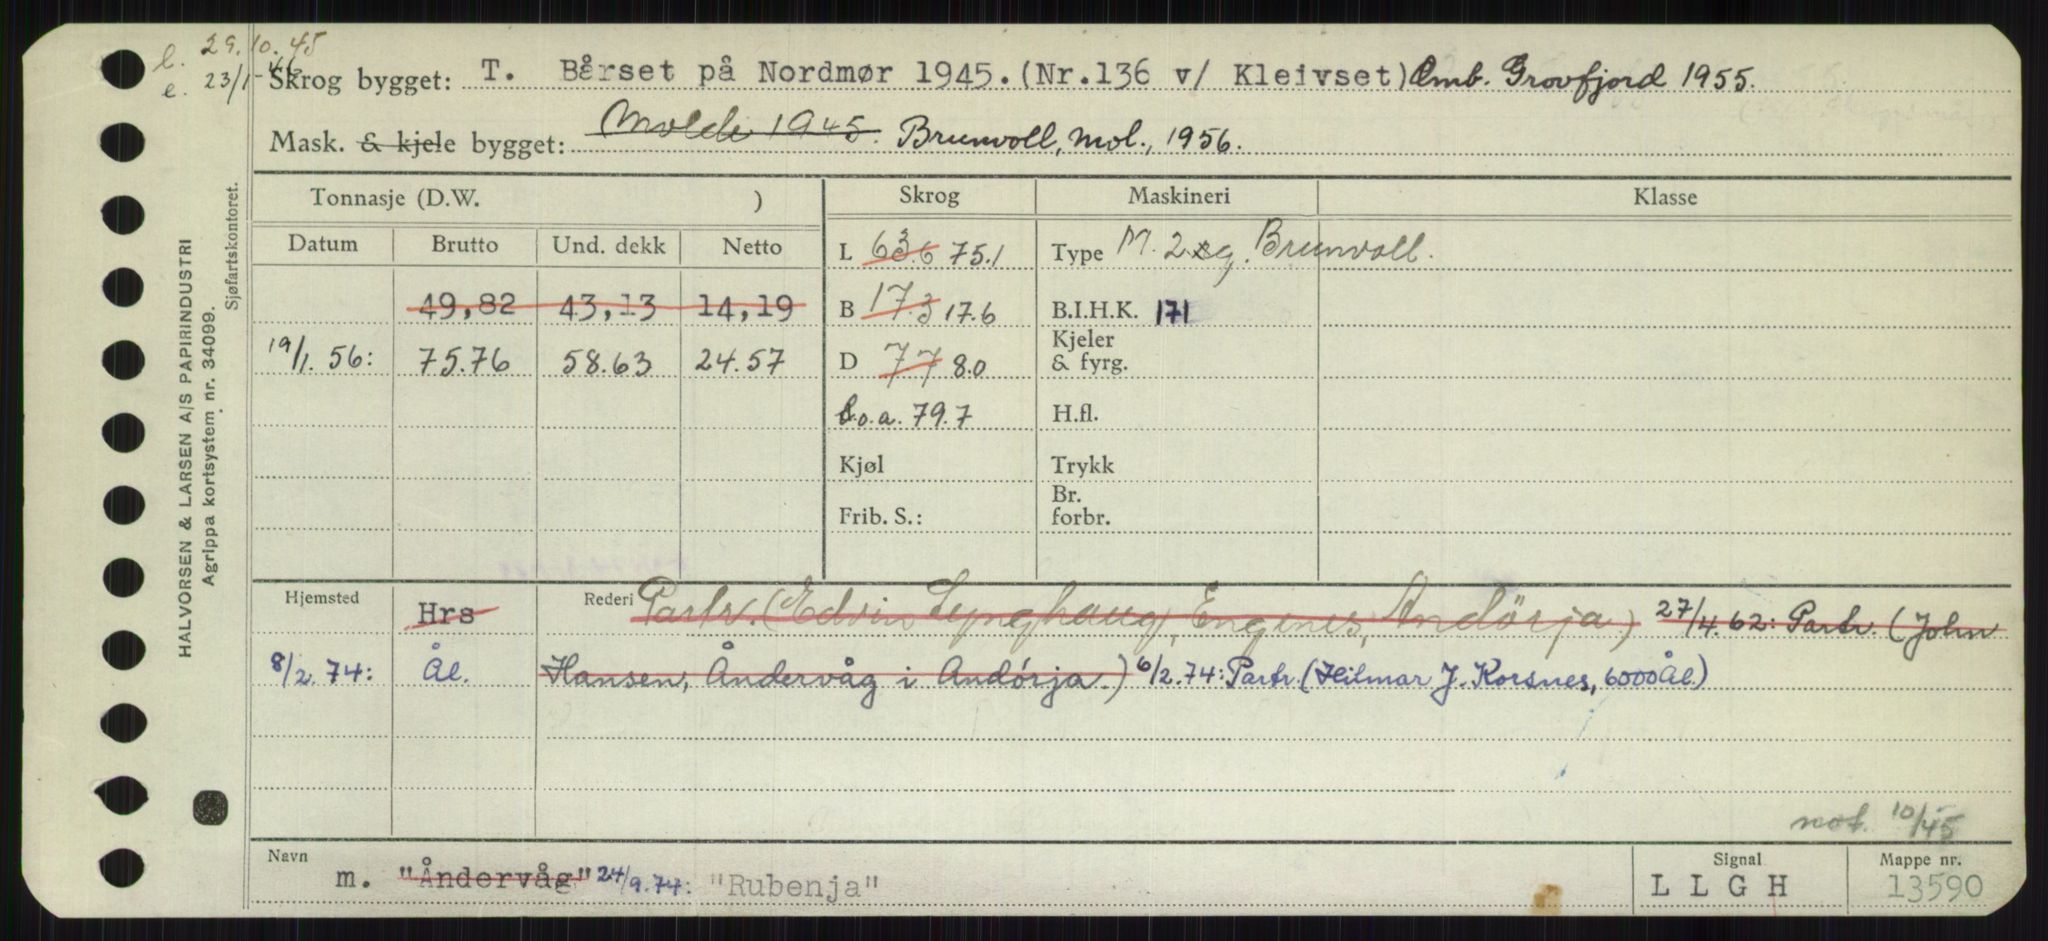 l. 29.10.45
e. 23/1-46
Skrog bygget: T. Bårset på Nordmør 1945. (Nr.136 v/ Kleivset) Omb. Grovfjord 1955.
Mask. & kjele bygget: Molde 1945. Brunvoll, Mol., 1956.
Tonnasje (D.W. ) Skrog Maskineri Klasse
Datum Brutto Und. dekk Netto L 63.6 75.1 Type M. 2 sg. Brunvoll.
49,82 43,13 14,19 B 17.3 17.6 B.I.H.K. 171
19/1. 56: 75.76 58.63 24.57 D 7.7 8.0 Kjeler & fyrg.
L.o.a. 79.7 H.fl.
Kjøl Trykk
Frib. S.: Br. forbr.
Hjemsted Hrs Rederi Partr. (Edvin Lynghaug, Engenes, Andörja) 27/4.62: Partr. (John
8/2. 74: Ål. Hansen, Åndervåg i Andørja.) 6/2.74: Partr. (Hilmar J. Korsnes, 6000 Ål.)
not. 10/45
Navn Signal Mappe nr.
m. "Åndervåg" 24/9.74: "Rubenja" LLGH 13590
HALVORSEN & LARSEN A/S PAPIRINDUSTRI
Agrippa kortsystem nr. 34099.
Sjøfartskontoret.